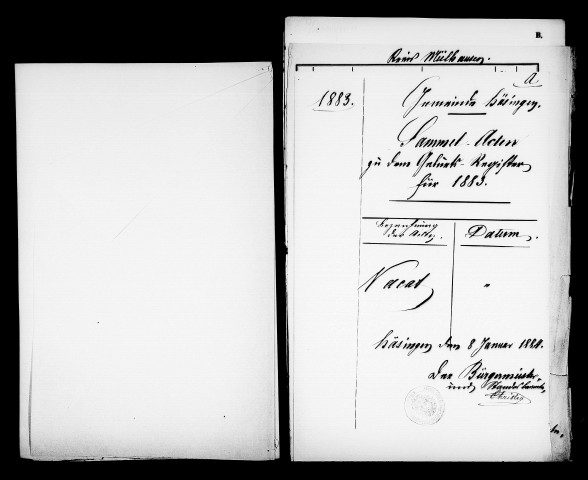 B.
Kreis Mülhausen.
A
1883.
Gemeinde Häsingen.
Sammel-Acten
zu dem Geburts-Register
für 1883.
Bezeichnung
des Actes.
Datum.
Vacat
"
Häsingen den 8 Januar 1884.
Der Bürgermeister
und Standesbeamte,